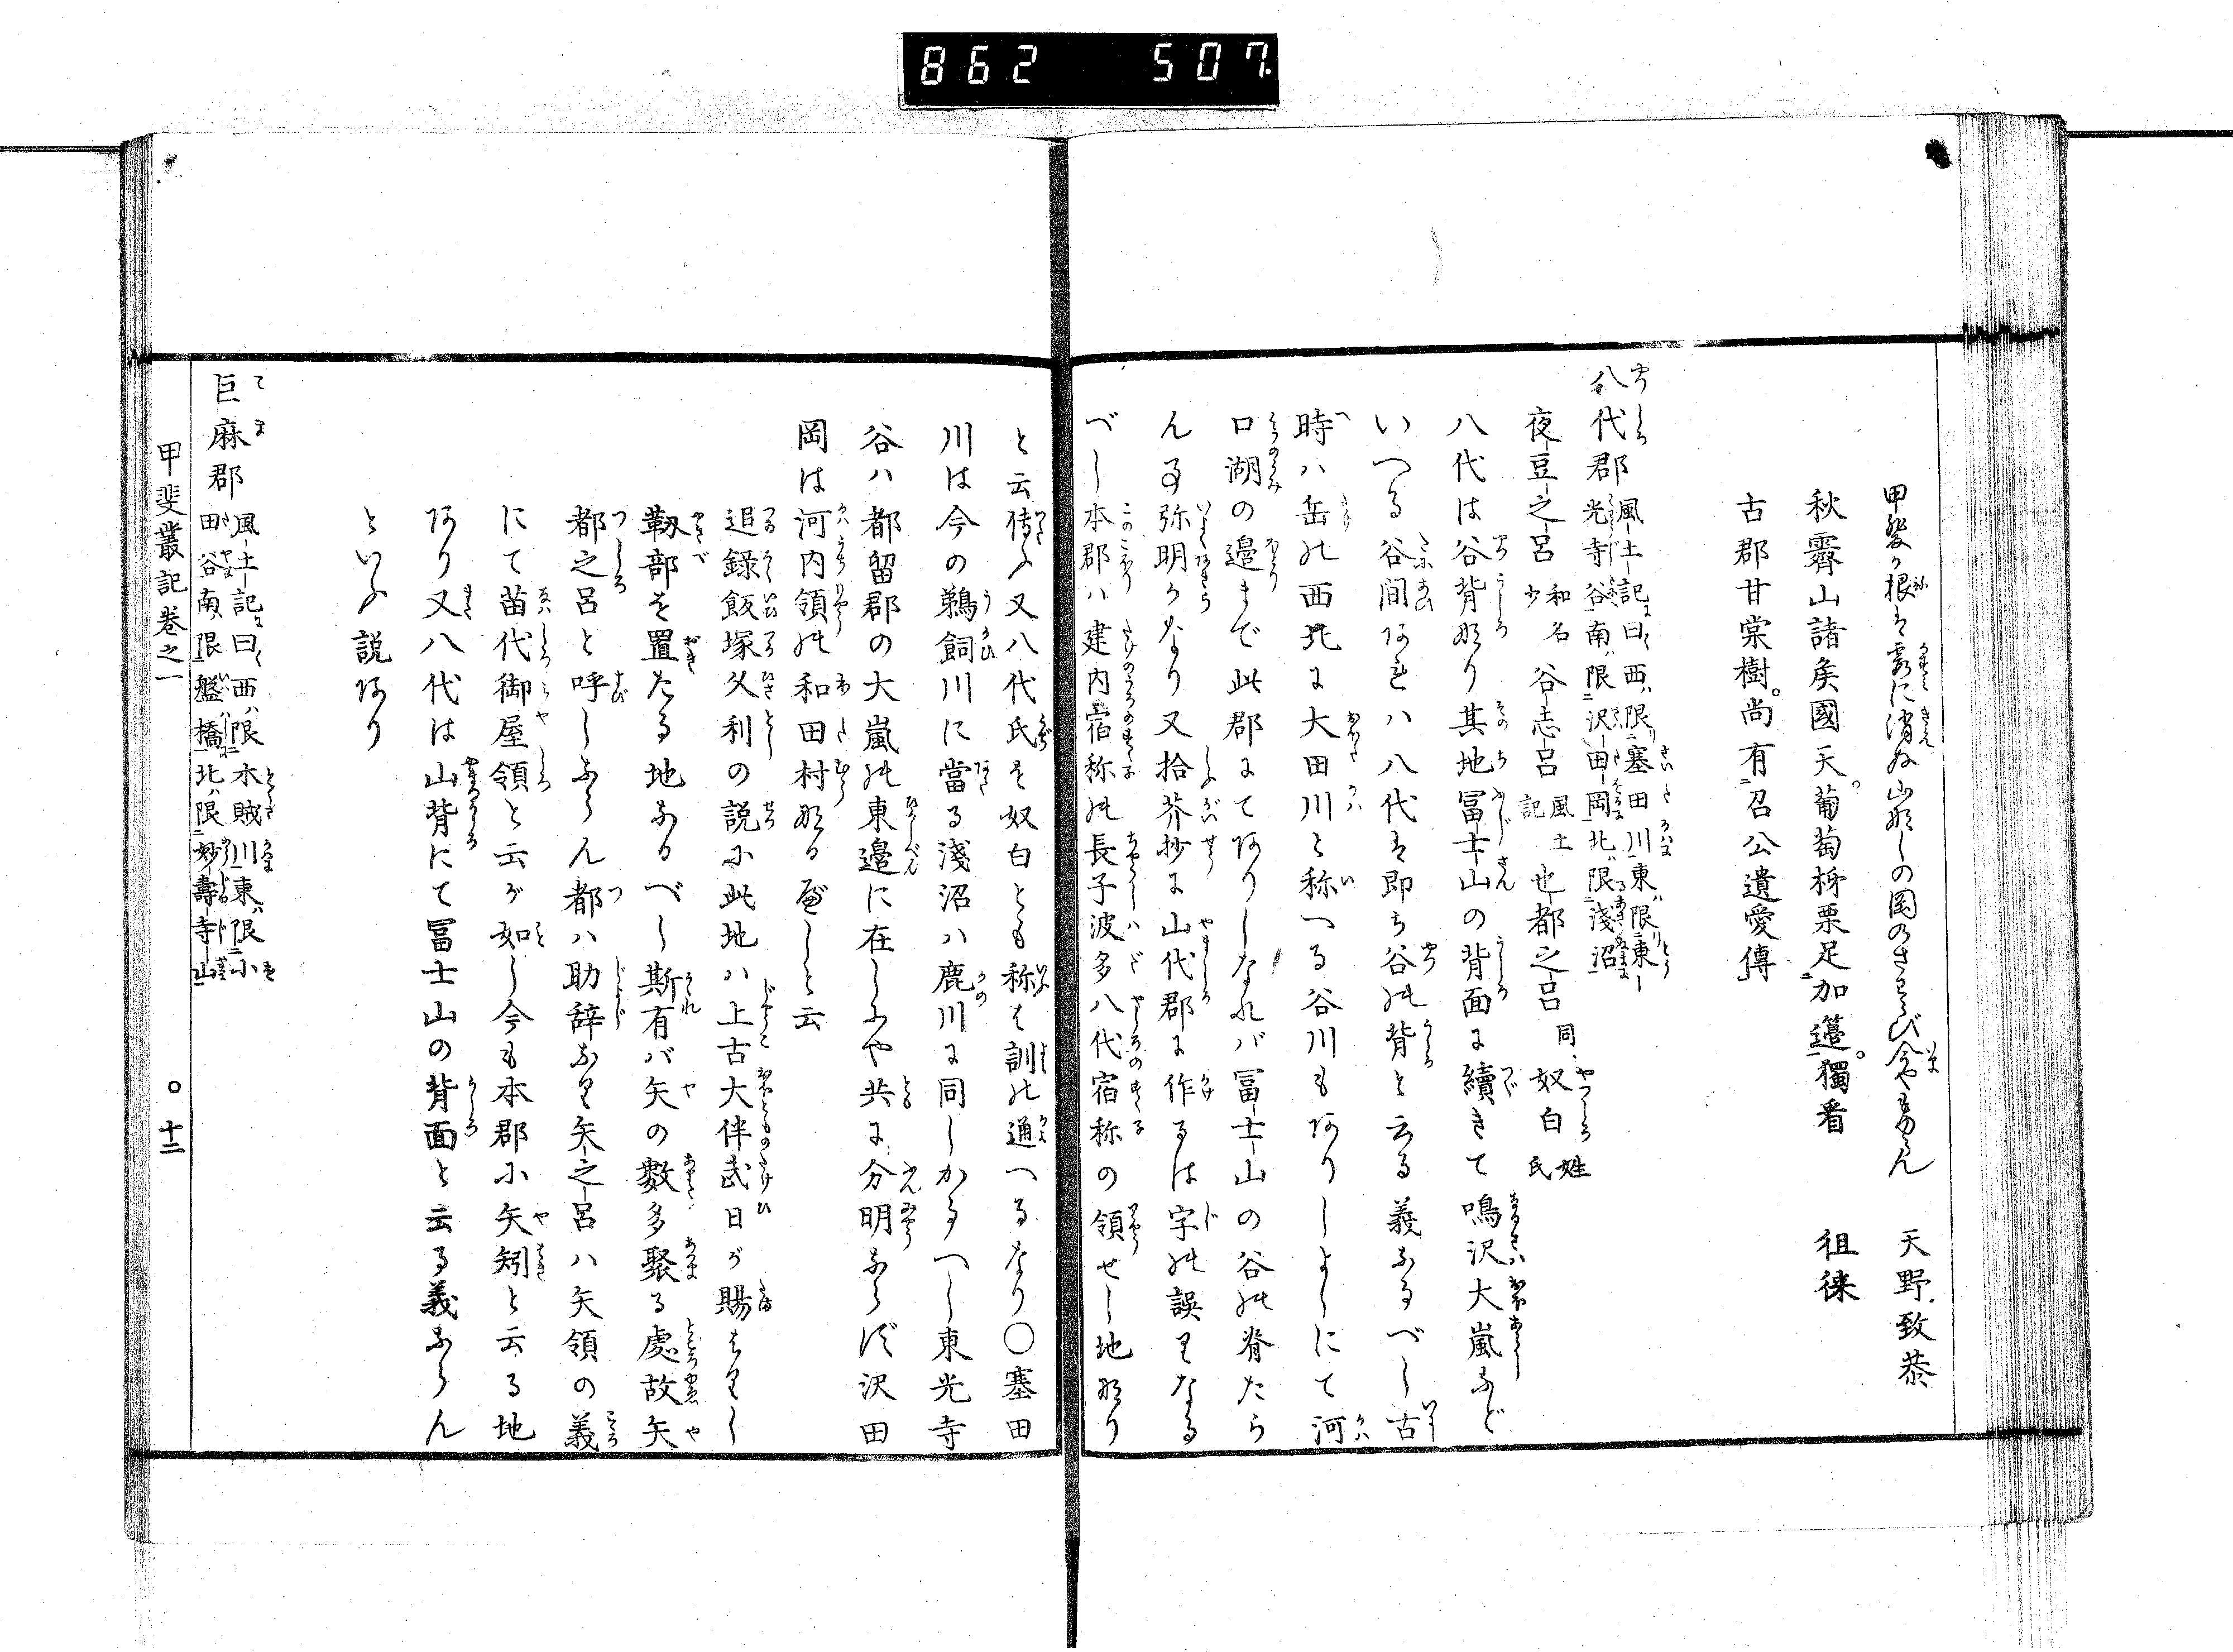 862 507.
甲斐か根は霞に消ぬ山那しの岡のさわらび今や萌らん 天野致恭
秋霽山諸矦國天葡萄栴栗足加籩獨看 徂徠
古郡甘棠樹尚有召公遺愛傳
八代郡 風土記曰西ハ限塞田川東ハ限東
光寺谷南ハ限沢田岡北ハ限淺沼
夜豆之呂 和名少 谷志呂 風土記 也都之呂 同 奴白 姓氏
八代は谷背那り其地冨士山の背面に續きて鳴沢大嵐など
いへる谷間あれハ八代は即ち谷の背と云る義なるべし古
時ハ岳の西北に大田川と称へる谷川もありしよしにて河
口湖の邉まで此郡にてありしなれバ冨士山の谷の脊たら
ん事弥明かなり又拾芥抄に山代郡に作るは字の誤りなる
べし本郡ハ建内宿称の長子波多八代宿称の領せし地那り
と云傳ふ又八代氏を奴白とも称は訓の通へるなり〇塞田
川は今の鵜飼川に當る淺沼ハ鹿川に同しかるへし東光寺
谷ハ都留郡の大嵐の東邉に在しふや共に分明ならず沢田
岡は河内領の和田村那る歴しと云
追錄飯塚久利の説に此地ハ上古大伴武日が賜はりし
靱部を置たる地なるべし斯有バ矢の數多聚る處故矢
都之呂と呼しならん都ハ助辞なり矢之呂ハ矢領の義
にて苗代御屋領と云が如し今も本郡に矢矧と云る地
あり又八代は山背にて冨士山の背面と云る義ならん
といふ説あり
巨麻郡 風土記曰西ハ限水賊川東ハ限小
田谷南ハ限盤橋北ハ限妙壽寺山
甲斐叢記巻之一 〇十二